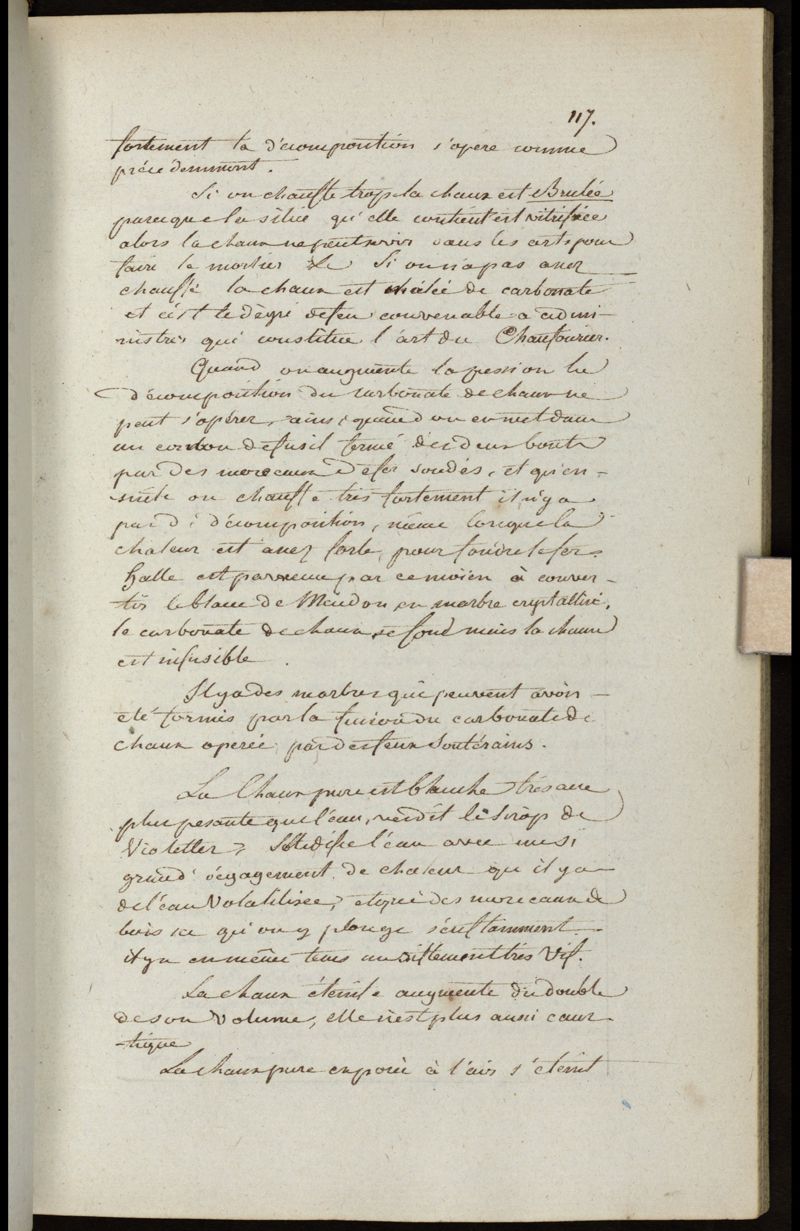 117.
fortement la décomposition s'opère comme
précédemment.
Si on chauffe trop la chaux est Brulée
parceque la silice qu'elle contient est vitrifiée
alors la chaux ne peut servir dans les arts pour
faire le mortier &c Si on n'a pas assez
chauffé la chaux est mêlée de carbonate
et c'est le dégré de feu convenable a admi-
nistrer qui constitue l'art du Chaufournier.
Quand on augmente la pression la
décomposition du carbonate de chaux ne
peut s'opérer, ainsi quand on en met dans
un canon de fusil fermé des deux bouts
par des morceaux de fer soudés, et qu'en-
suite on chauffe très fortement il n'y a
pas de décomposition, même lorsque la
chaleur est assez forte, pour fondre le fer.
halle est parvenu par ce moïen à conver-
tir le blanc de Meudon en marbre crystallisé,
le carbonate de chaux se fond mais la chaux
est infusible.
Il y a des marbres qui peuvent avoir
été formés par la fusion du carbonate de
chaux opérée par des feux soutérains.
La Chaux pure est blanche très acre
plus pesante que l'eau, verdit le sirop de
Violettes, Solidifie l'eau avec un si
grand dégagement de chaleur qu'il y a
de l'eau Volatilisée, et que des morceaux de
bois sec qu'on y plonge s'enflamment
il y a en même tems un sifflement très Vif.
La chaux éteinte augmente du double
de son Volume, elle n'est plus aussi caus-
tique
La chaux pure exposée à l'air s'éteint